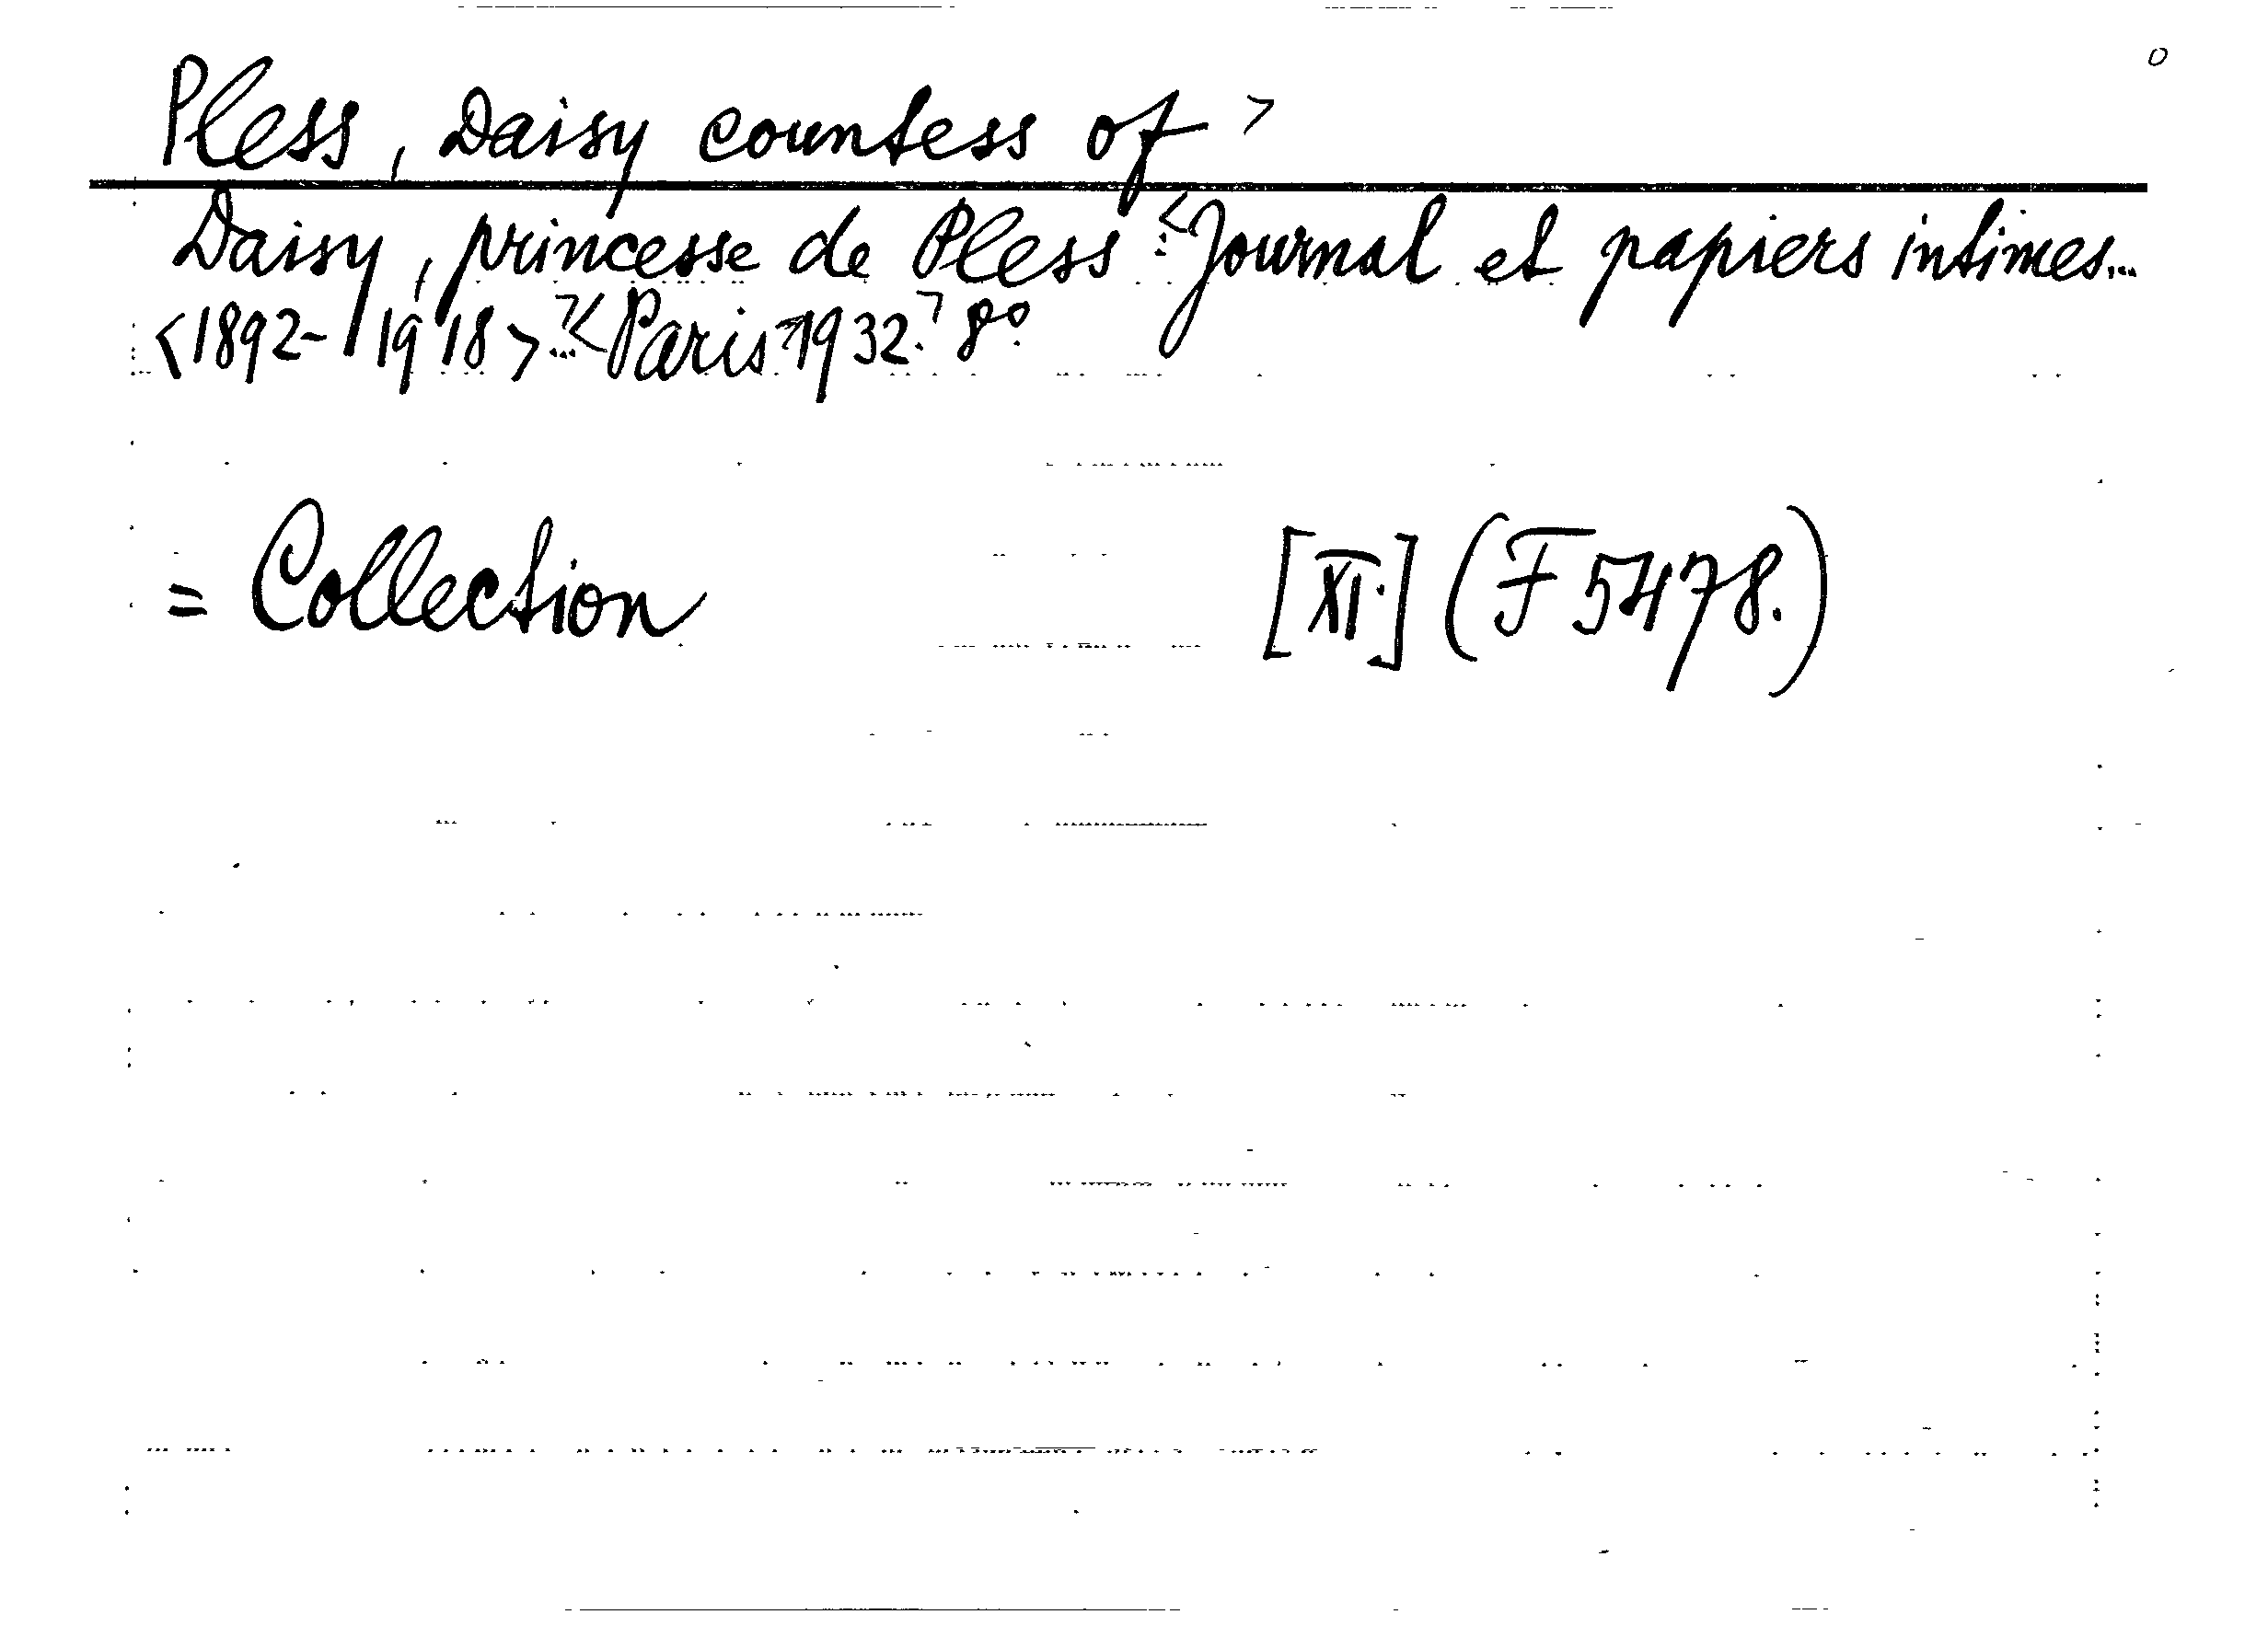 Pless, Daisy countess of >
Daisy, princesse de Pless : <Journal et papiers intimes...
<1892-1918>...> <Paris> 1932.> 8°.
= Collection [XI.] (F 5478.)